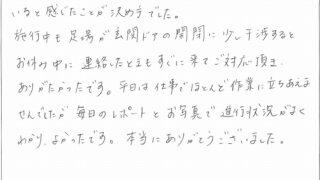 いると感じたことが決め手でした。
旅行中も足場が玄関ドアの開閉に少し干渉すると
お休み中に連絡したときもすぐに来てご対応頂き
ありがたかったです。平日は仕事がほとんど作業に立ちあえま
せんでしたが毎日のレポートとお写真で進行状況がよく
わかり、よかったです。本当にありがとうございました。